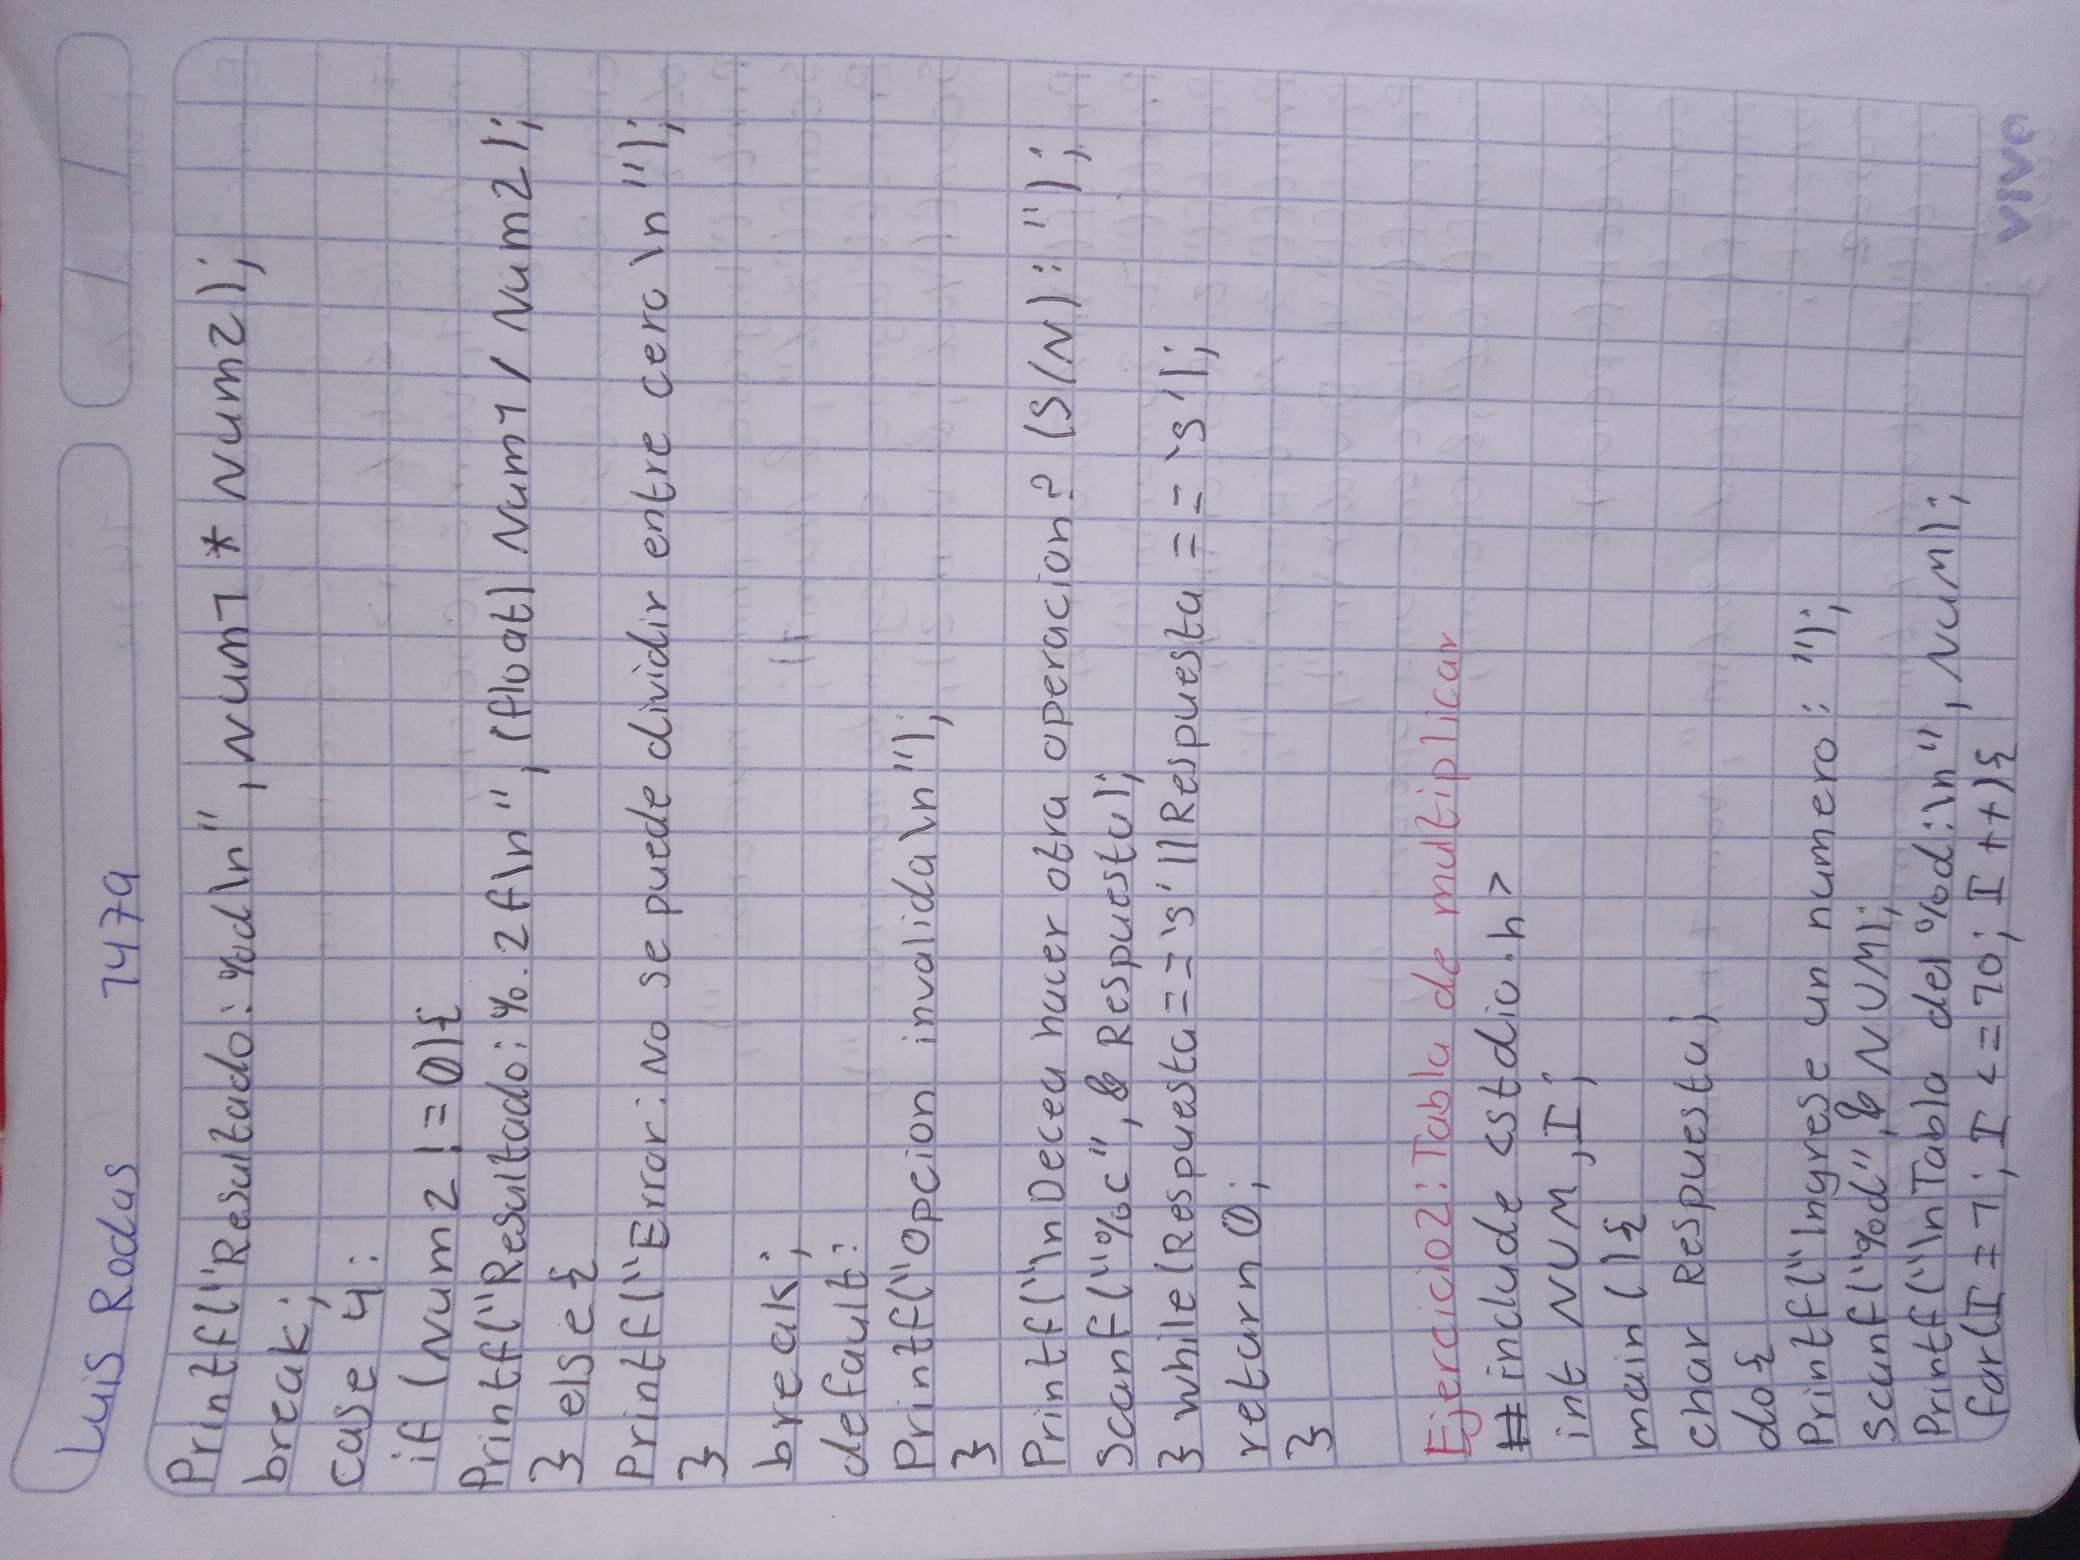 Luis Rodas 1479
Printf("Resultado: %d\n", Num1 * Num2);
break;
case 4:
if (Num2 != 0){
Printf("Resultado: %.2f\n", (float) Num1 / Num2);
} else {
Printf("Error: No se puede dividir entre cero \n");
}
break;
default:
Printf("Opcion invalida\n");
}
Printf("\nDecea hacer otra operacion? (S/N): ");
Scanf("%c", & Respuesta);
} while (Respuesta == 's' || Respuesta == 's');
return 0;
}
Ejercicio 2: Tabla de multiplicar
#include <stdio.h>
int NUM, I;
main (){
char Respuesta;
do{
Printf("Ingrese un numero: ");
Scanf("%d", & NUM);
Printf("\nTabla del %d:\n", NUM);
for(I = 1; I <= 10; I ++){
VIVA